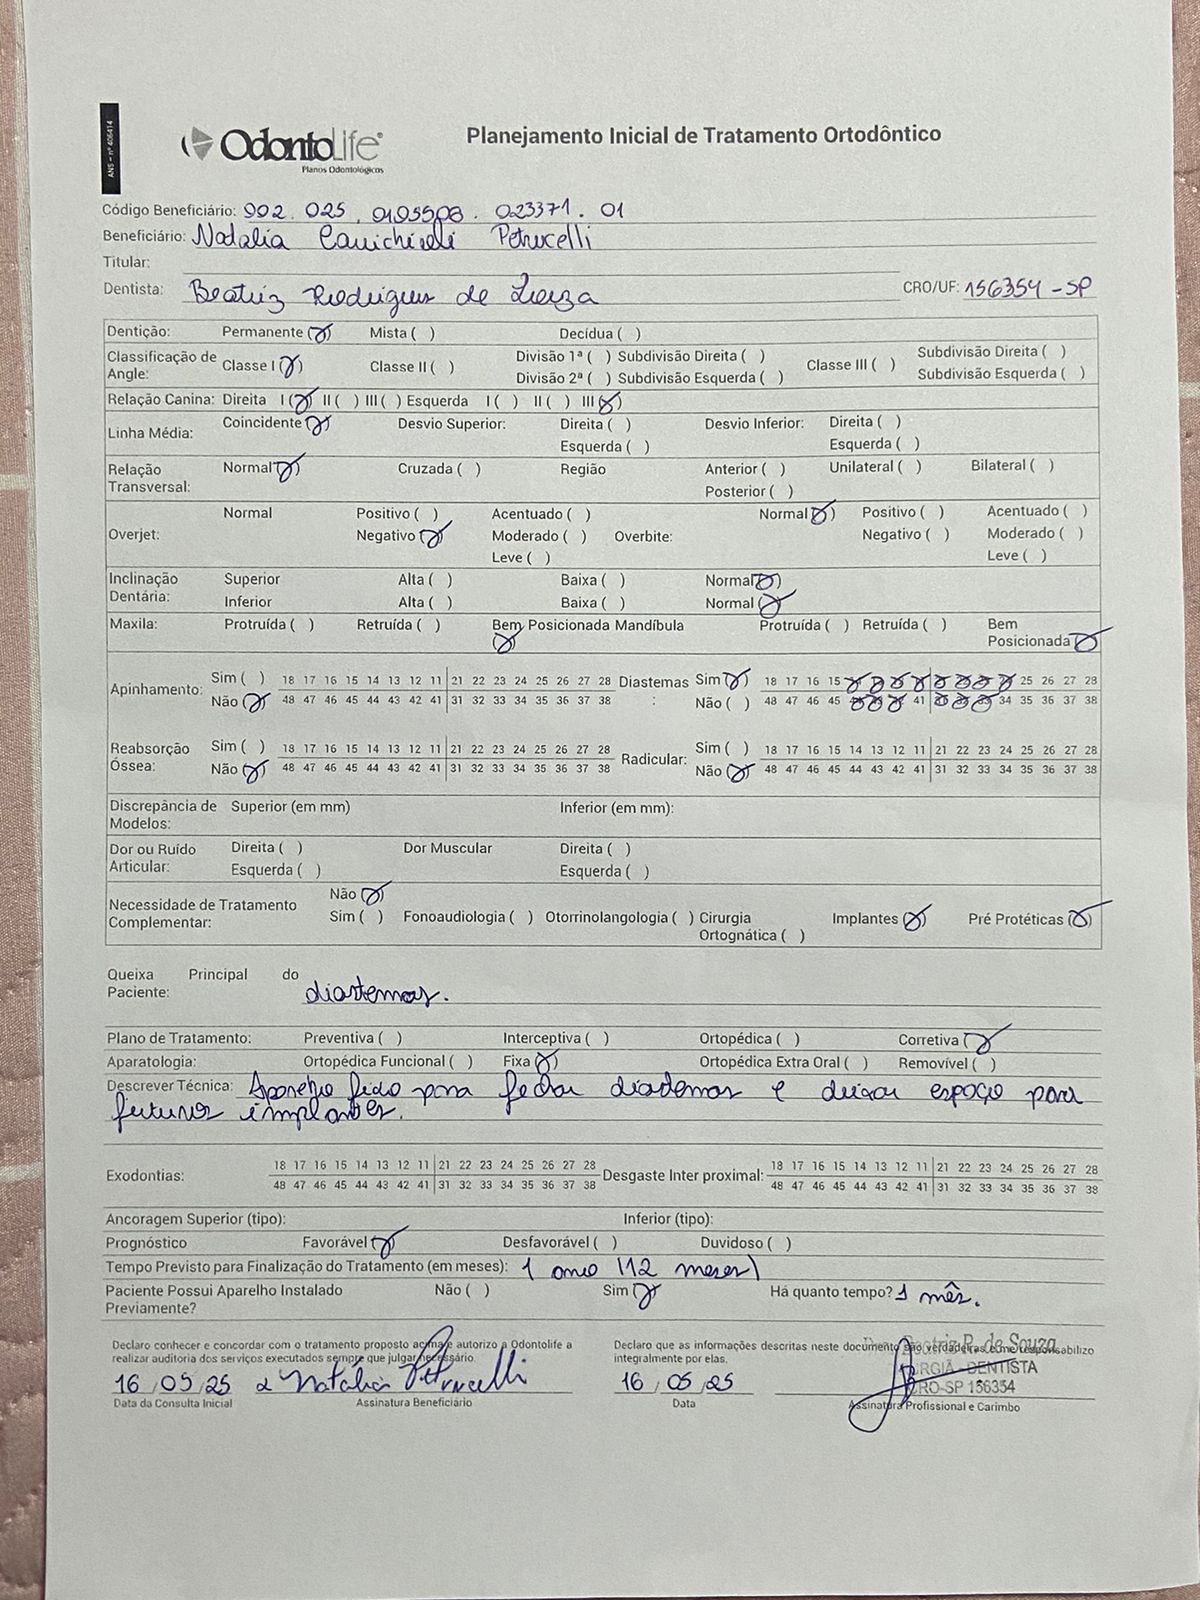 ANS - nº 406414
OdontoLife®
Planos Odontológicos
Planejamento Inicial de Tratamento Ortodôntico
Código Beneficiário: 902.025.0105508.023371.01
Beneficiário: Natalia Petrucelli
Titular:
Dentista: Beatriz Rodrigues de Souza CRO/UF: 156354-SP
Dentição: Permanente (X) Mista ( ) Decídua ( )
Classificação de Angle: Classe I (X) Classe II ( ) Divisão 1ª ( ) Subdivisão Direita ( ) Classe III ( ) Subdivisão Direita ( )
Divisão 2ª ( ) Subdivisão Esquerda ( ) Subdivisão Esquerda ( )
Relação Canina: Direita I (X) II ( ) III ( ) Esquerda I ( ) II ( ) III (X)
Linha Média: Coincidente (X) Desvio Superior: Direita ( ) Desvio Inferior: Direita ( )
Esquerda ( ) Esquerda ( )
Relação Transversal: Normal (X) Cruzada ( ) Região Anterior ( ) Unilateral ( ) Bilateral ( )
Posterior ( )
Overjet: Normal Positivo ( ) Acentuado ( ) Overbite: Normal (X) Positivo ( ) Acentuado ( )
Negativo (X) Moderado ( ) Negativo ( ) Moderado ( )
Leve ( ) Leve ( )
Inclinação Dentária: Superior Alta ( ) Baixa ( ) Normal (X)
Inferior Alta ( ) Baixa ( ) Normal (X)
Maxila: Protruída ( ) Retruída ( ) Bem Posicionada (X) Mandíbula Protruída ( ) Retruída ( ) Bem Posicionada (X)
Apinhamento: Sim ( ) 18 17 16 15 14 13 12 11 21 22 23 24 25 26 27 28 Diastemas: Sim (X) 18 17 16 15 25 26 27 28
Não (X) 48 47 46 45 44 43 42 41 31 32 33 34 35 36 37 38 Não ( ) 48 47 46 45 41 34 35 36 37 38
Reabsorção Óssea: Sim ( ) 18 17 16 15 14 13 12 11 21 22 23 24 25 26 27 28 Radicular: Sim ( ) 18 17 16 15 14 13 12 11 21 22 23 24 25 26 27 28
Não (X) 48 47 46 45 44 43 42 41 31 32 33 34 35 36 37 38 Não (X) 48 47 46 45 44 43 42 41 31 32 33 34 35 36 37 38
Discrepância de Modelos: Superior (em mm) Inferior (em mm):
Dor ou Ruído Articular: Direita ( ) Dor Muscular Direita ( )
Esquerda ( ) Esquerda ( )
Necessidade de Tratamento Complementar: Não (X)
Sim ( ) Fonoaudiologia ( ) Otorrinolangologia ( ) Cirurgia Ortognática ( ) Implantes (X) Pré Protéticas (X)
Queixa Principal do Paciente: diastemas.
Plano de Tratamento: Preventiva ( ) Interceptiva ( ) Ortopédica ( ) Corretiva (X)
Aparatologia: Ortopédica Funcional ( ) Fixa (X) Ortopédica Extra Oral ( ) Removível ( )
Descrever Técnica: Aparelho fixo para fechar diastemas e deixar espaço para
futuros implantes.
Exodontias: 18 17 16 15 14 13 12 11 21 22 23 24 25 26 27 28 Desgaste Inter proximal: 18 17 16 15 14 13 12 11 21 22 23 24 25 26 27 28
48 47 46 45 44 43 42 41 31 32 33 34 35 36 37 38 48 47 46 45 44 43 42 41 31 32 33 34 35 36 37 38
Ancoragem Superior (tipo): Inferior (tipo):
Prognóstico Favorável (X) Desfavorável ( ) Duvidoso ( )
Tempo Previsto para Finalização do Tratamento (em meses): 1 ano (12 meses)
Paciente Possui Aparelho Instalado Previamente? Não ( ) Sim (X) Há quanto tempo? 1 mês.
Declaro conhecer e concordar com o tratamento proposto acima e autorizo a Odontolife a
realizar auditoria dos serviços executados sempre que julgar necessário.
Declaro que as informações descritas neste documento são verdadeiras e me responsabilizo
integralmente por elas.
16/05/25 Natália Petrucelli
Data da Consulta Inicial Assinatura Beneficiário
16/05/25
Data
Beatriz R. de Souza
CIRURGIÃ - DENTISTA
CRO-SP 156354
Assinatura Profissional e Carimbo